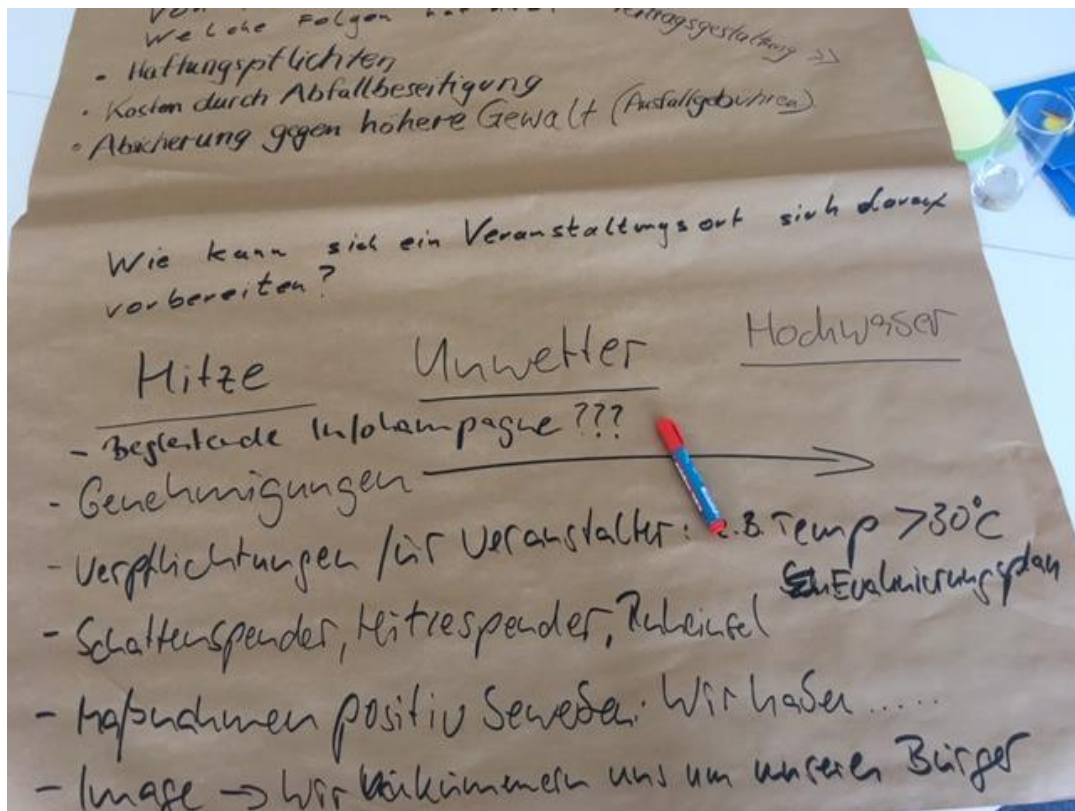 Welche Folgen hat
Vertragsgestaltung
• Haftungspflichten
• Kosten durch Abfallbeseitigung
• Absicherung gegen höhere Gewalt (Ausfallgebühren)
Wie kann sich ein Veranstaltungsort sich darauf
vorbereiten?
Hitze Unwetter Hochwasser
- Begleitende Infokampagne ???
- Genehmigungen →
- Verpflichtungen für Veranstalter: z.B. Temp >30°C
Evaluierungsplan
- Schattenspender, Hitzespender, Ruheinsel
- Maßnahmen positiv bewerben: Wir haben .....
- Image → Wir kümmern uns um unseren Bürger